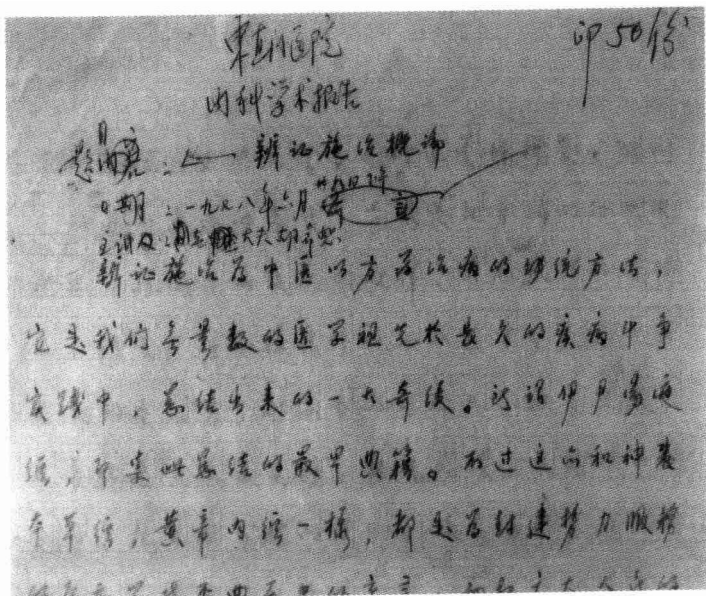 印50份
东直门医院
内科学术报告
题目: 辨证施治概论
日期:一九七八年六月廿九日
主讲人: 大夫胡希恕
辨证施治为中医以方药治病的传统方法,
它是我们无量数的医学祖先於长久的疾病中争
实践中,总结出来的一大奇绩。所谓伊尹汤液
经,即集此总结的最早典籍。不过这亦和神农
本草经,黄帝内经一样,都是为封建势力服务